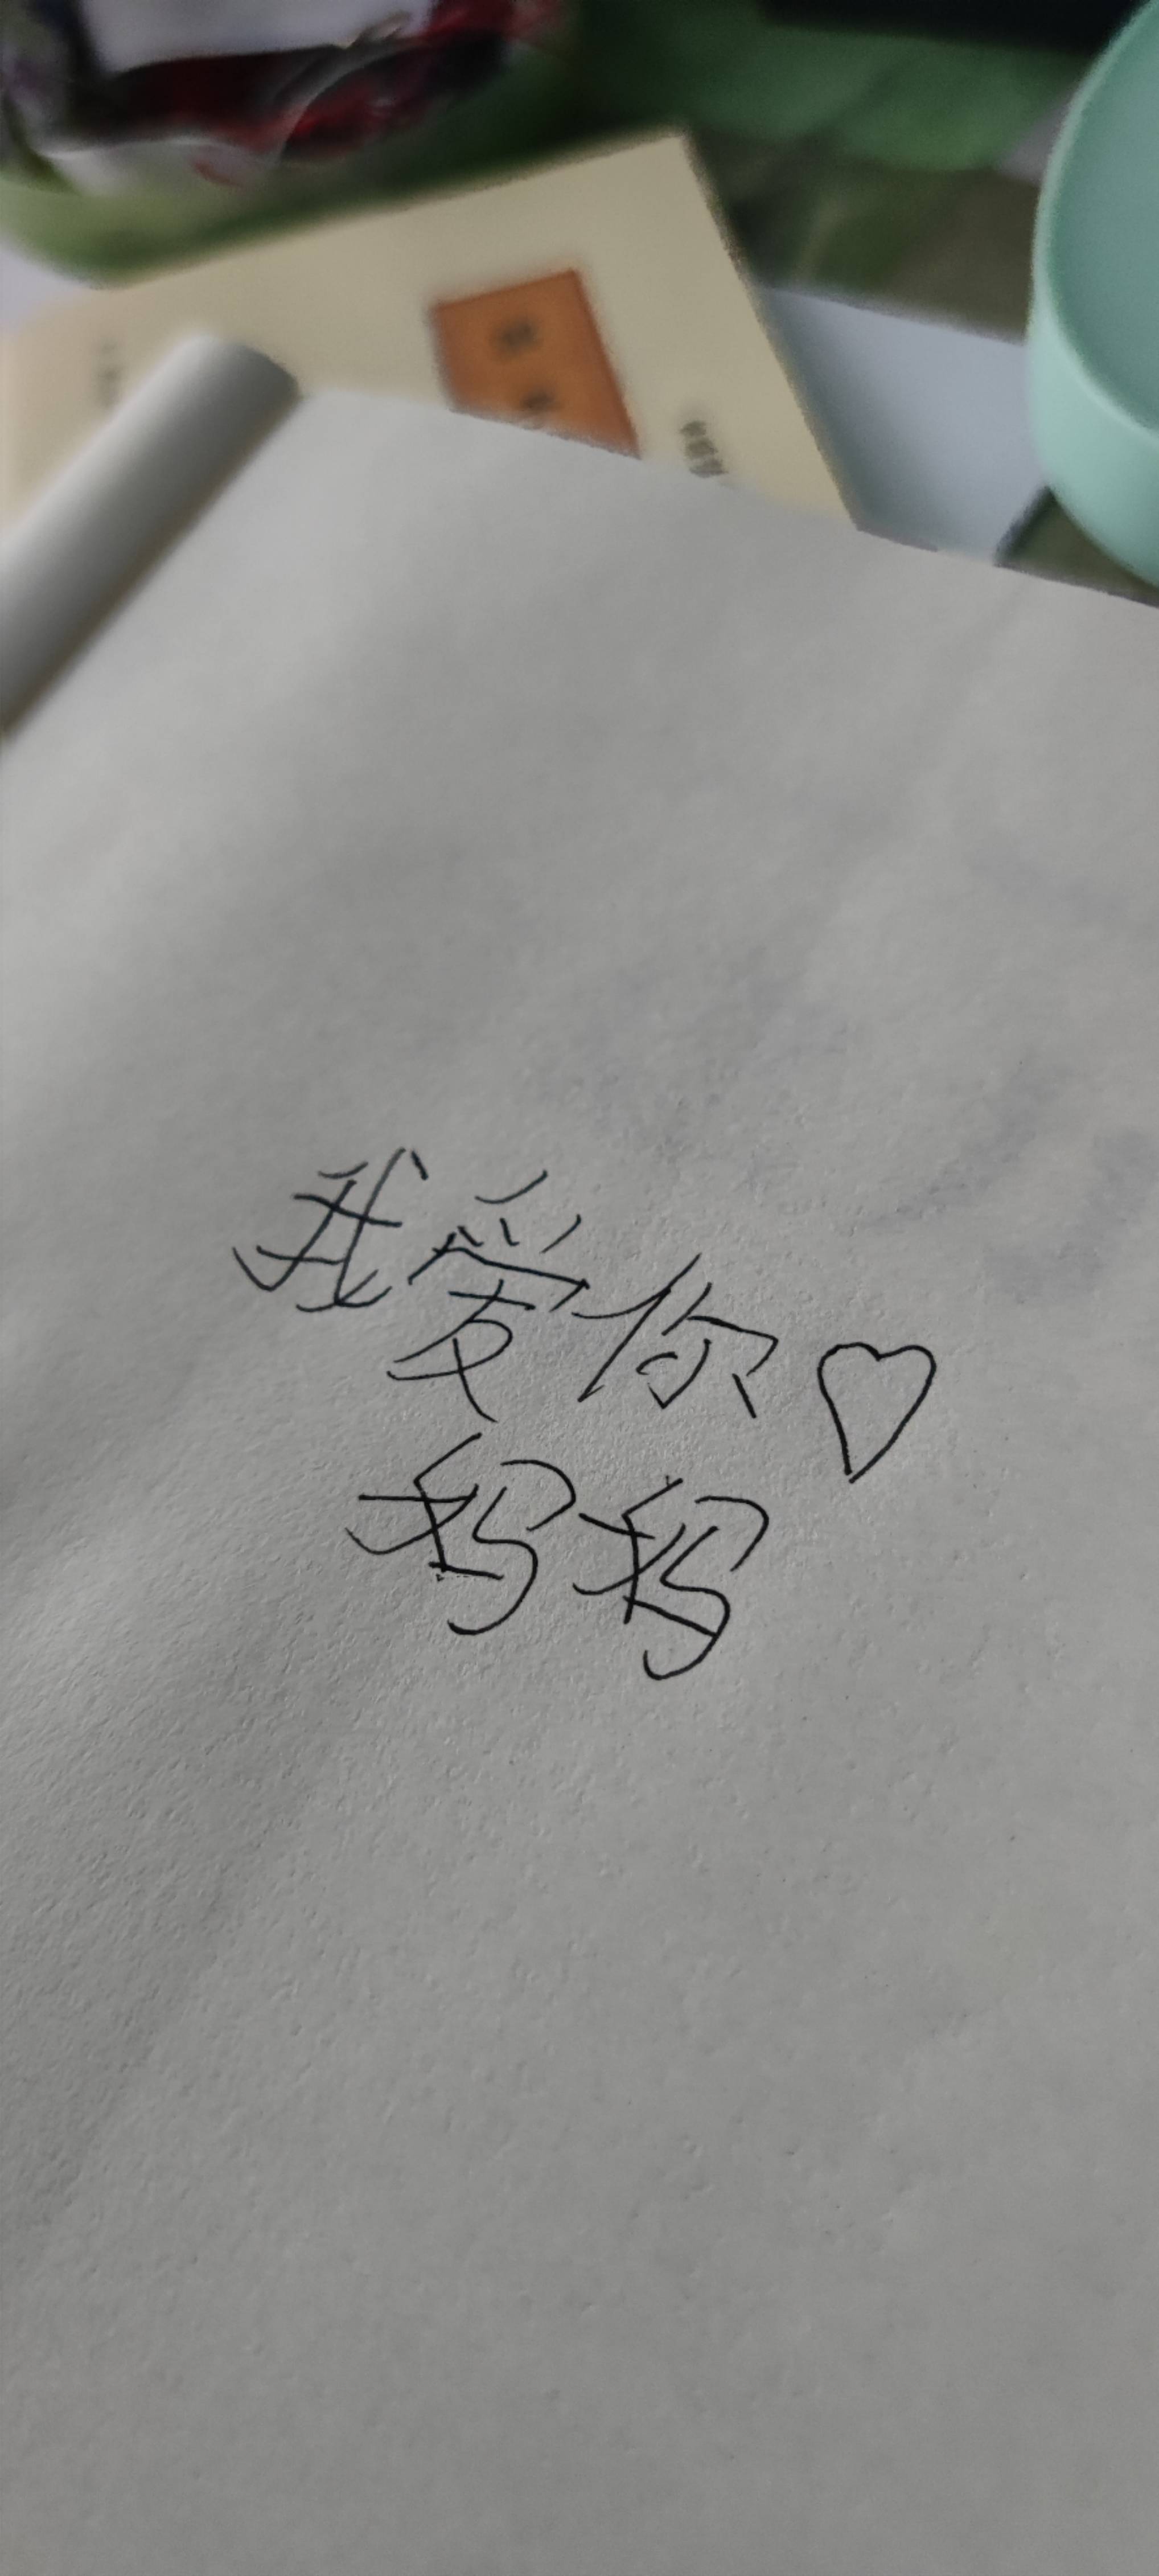 我爱你♡
妈妈